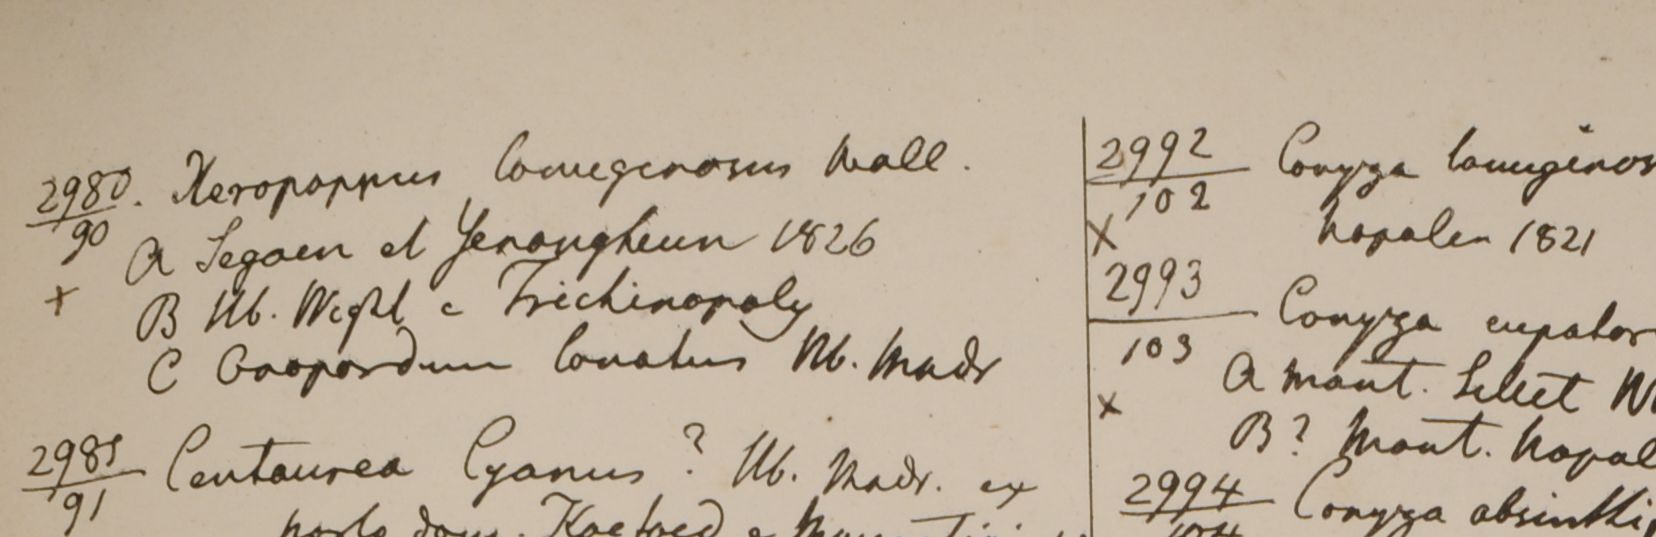 2980. Xeropappus lanuginosus Wall.
90
A Segaen et Yenangheun 1826
B Hb. Wight e Trichinopoly
C Onopordum lanatus Hb. Madr
2981 Centaurea Cyanus? Hb. Madr. ex
91
horto dom.
2992 Conyza lanuginos
102
Napalen 1821
2993
103 Conyza eupator
A mont. Sillet
B? mont. Napal
2994 Conyza absinthi
104